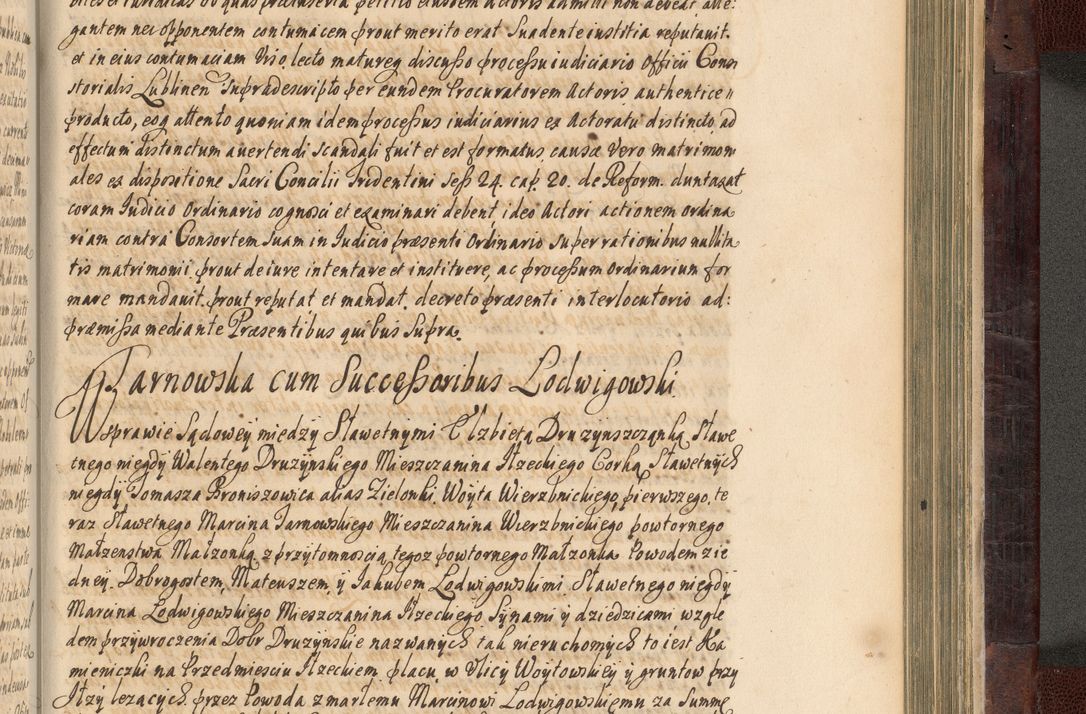 gantem nec opponentem contumacem prout merito erat Suadente iustitia reputavit.
et in eius contumaciam Viso, lecto matureq discusso processu iudiciario Officii Consi
storialis Lublinen Supradescripto per eundem Procuratorem Actoris authentice
producto, eoq attento quoniam idem processus iudiciarius ex Actoratu distincto, ad
effectum distinctum avertendi Scandali fuit et est formatus, causæ Vero matrimon
ales ex dispositione Sacri Concilii Tridentini Sess 24. cap. 20. de Reform. duntaxat
coram Judicio Ordinario cognosci et examinari debent, ideo Actori actionem ordina
riam contra Consortem Suam in Judicio præsenti Ordinario Super rationibus nullita
tis matrimonii prout de iure intentare et instituere, ac processum Ordinarium for
mare mandavit. prout reputat et mandat. decreto præsenti interlocutorio ad:
præmissa mediante Præsentibus quibus Supra.
Tarnowska cum Successoribus Lodwigowski.
W sprawie Sądowey między Sławetnymi Elzbietą Druzynszczanką Sławe
tnego niegdy Walentego Druzynskiego Mieszczanina Iłzeckiego Corką Sławetnych
niegdy Tomasza Broniszowica alias Zielonki Woyta Wierzbnickiego, pierwszego, te
raz Sławetnego Marcina Tarnowskiego Mieszczanina Wierzbnickiego powtornego
Małzenstwa Małzonką z przytomnoscią tegoz powtornego Małzonka Powodem z ie
dney. Dobrogostem, Mateuszem, y Jakubem Lodwigowskimi Sławetnego niegdy
Marcina Lodwigowskiego Mieszczanina Iłzeckiego Synami y dziedzicami wzglę
dem przywroczenia Dobr Druzynskie nazwanych tak nieruchomych to iest Ka
mieniczki na Przedmiesciu Iłzeckiem placu w Ulicy Woytowskiey y gruntow przy
Iłzy lezących przez Powoda zmarłemu Marcinowi Lodwigowskiemu za Summę